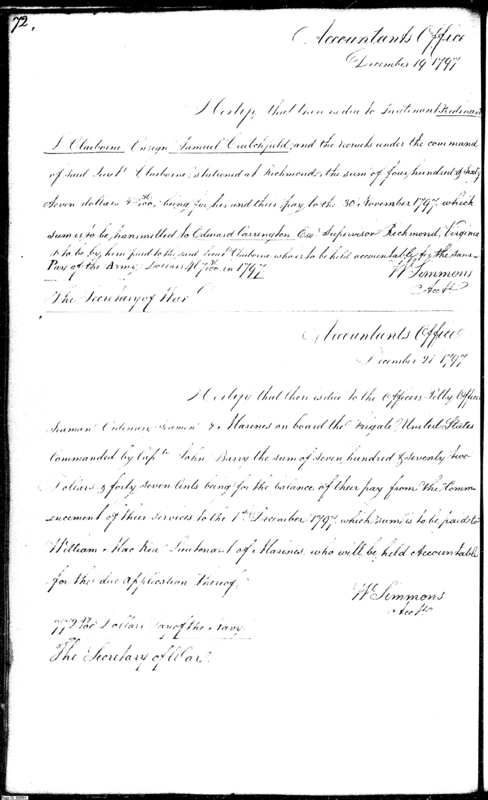 72.
Accountants Office
December 19 1797
I Certify that there is due to Lieutenant Ferdinand
L. Claiborne Ensign Samuel Crutchfield, and the recruits under the command
of said Lieut Claiborne, stationed at Richmond, the sum of four hundred & sixty
Seven dollars & /100, being for his and their pay, to the 30 November 1797 which
sum is to be, transmitted to Edward Carrington Esqr Supervisor Richmond, Virginia
& to be by him paid to the said Lieut Claiborne who is to be held accountable for the same
Pay of the Army Dollars 467 /100 in 1797
Wm Simmons
Acctt
The Secretary of War
Accountants Office
December 20 1797
I Certify that there is due to the Officers Petty Officers
Seaman Ordinary Seamen & Marines on board the Frigate United States
Commanded by Captn John Barry the sum of seven hundred & seventy two
Dollars & forty seven Cents being for the balance of their pay from the Comm
encement of their services to the 1st December 1797, which sum is to be paid to
William MacRea Lieutenant of Marines, who will be held Accountable
for the due application thereof.
Wm Simmons
Acctt
772 /100 Dollars Pay of the Navy
The Secretary of War.